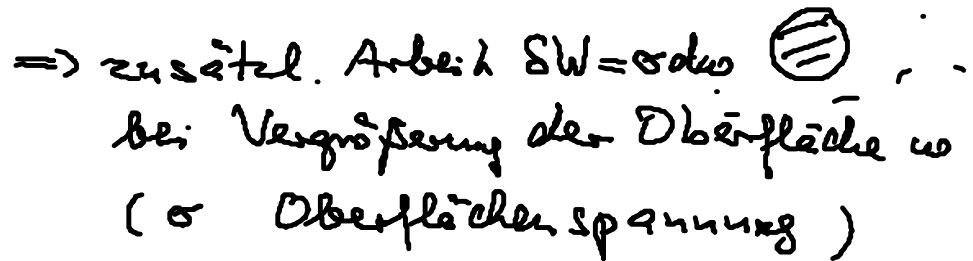 => zusätzl. Arbeit δW = σdω
bei Vergrößerung der Oberfläche ω
(σ Oberflächenspannung)